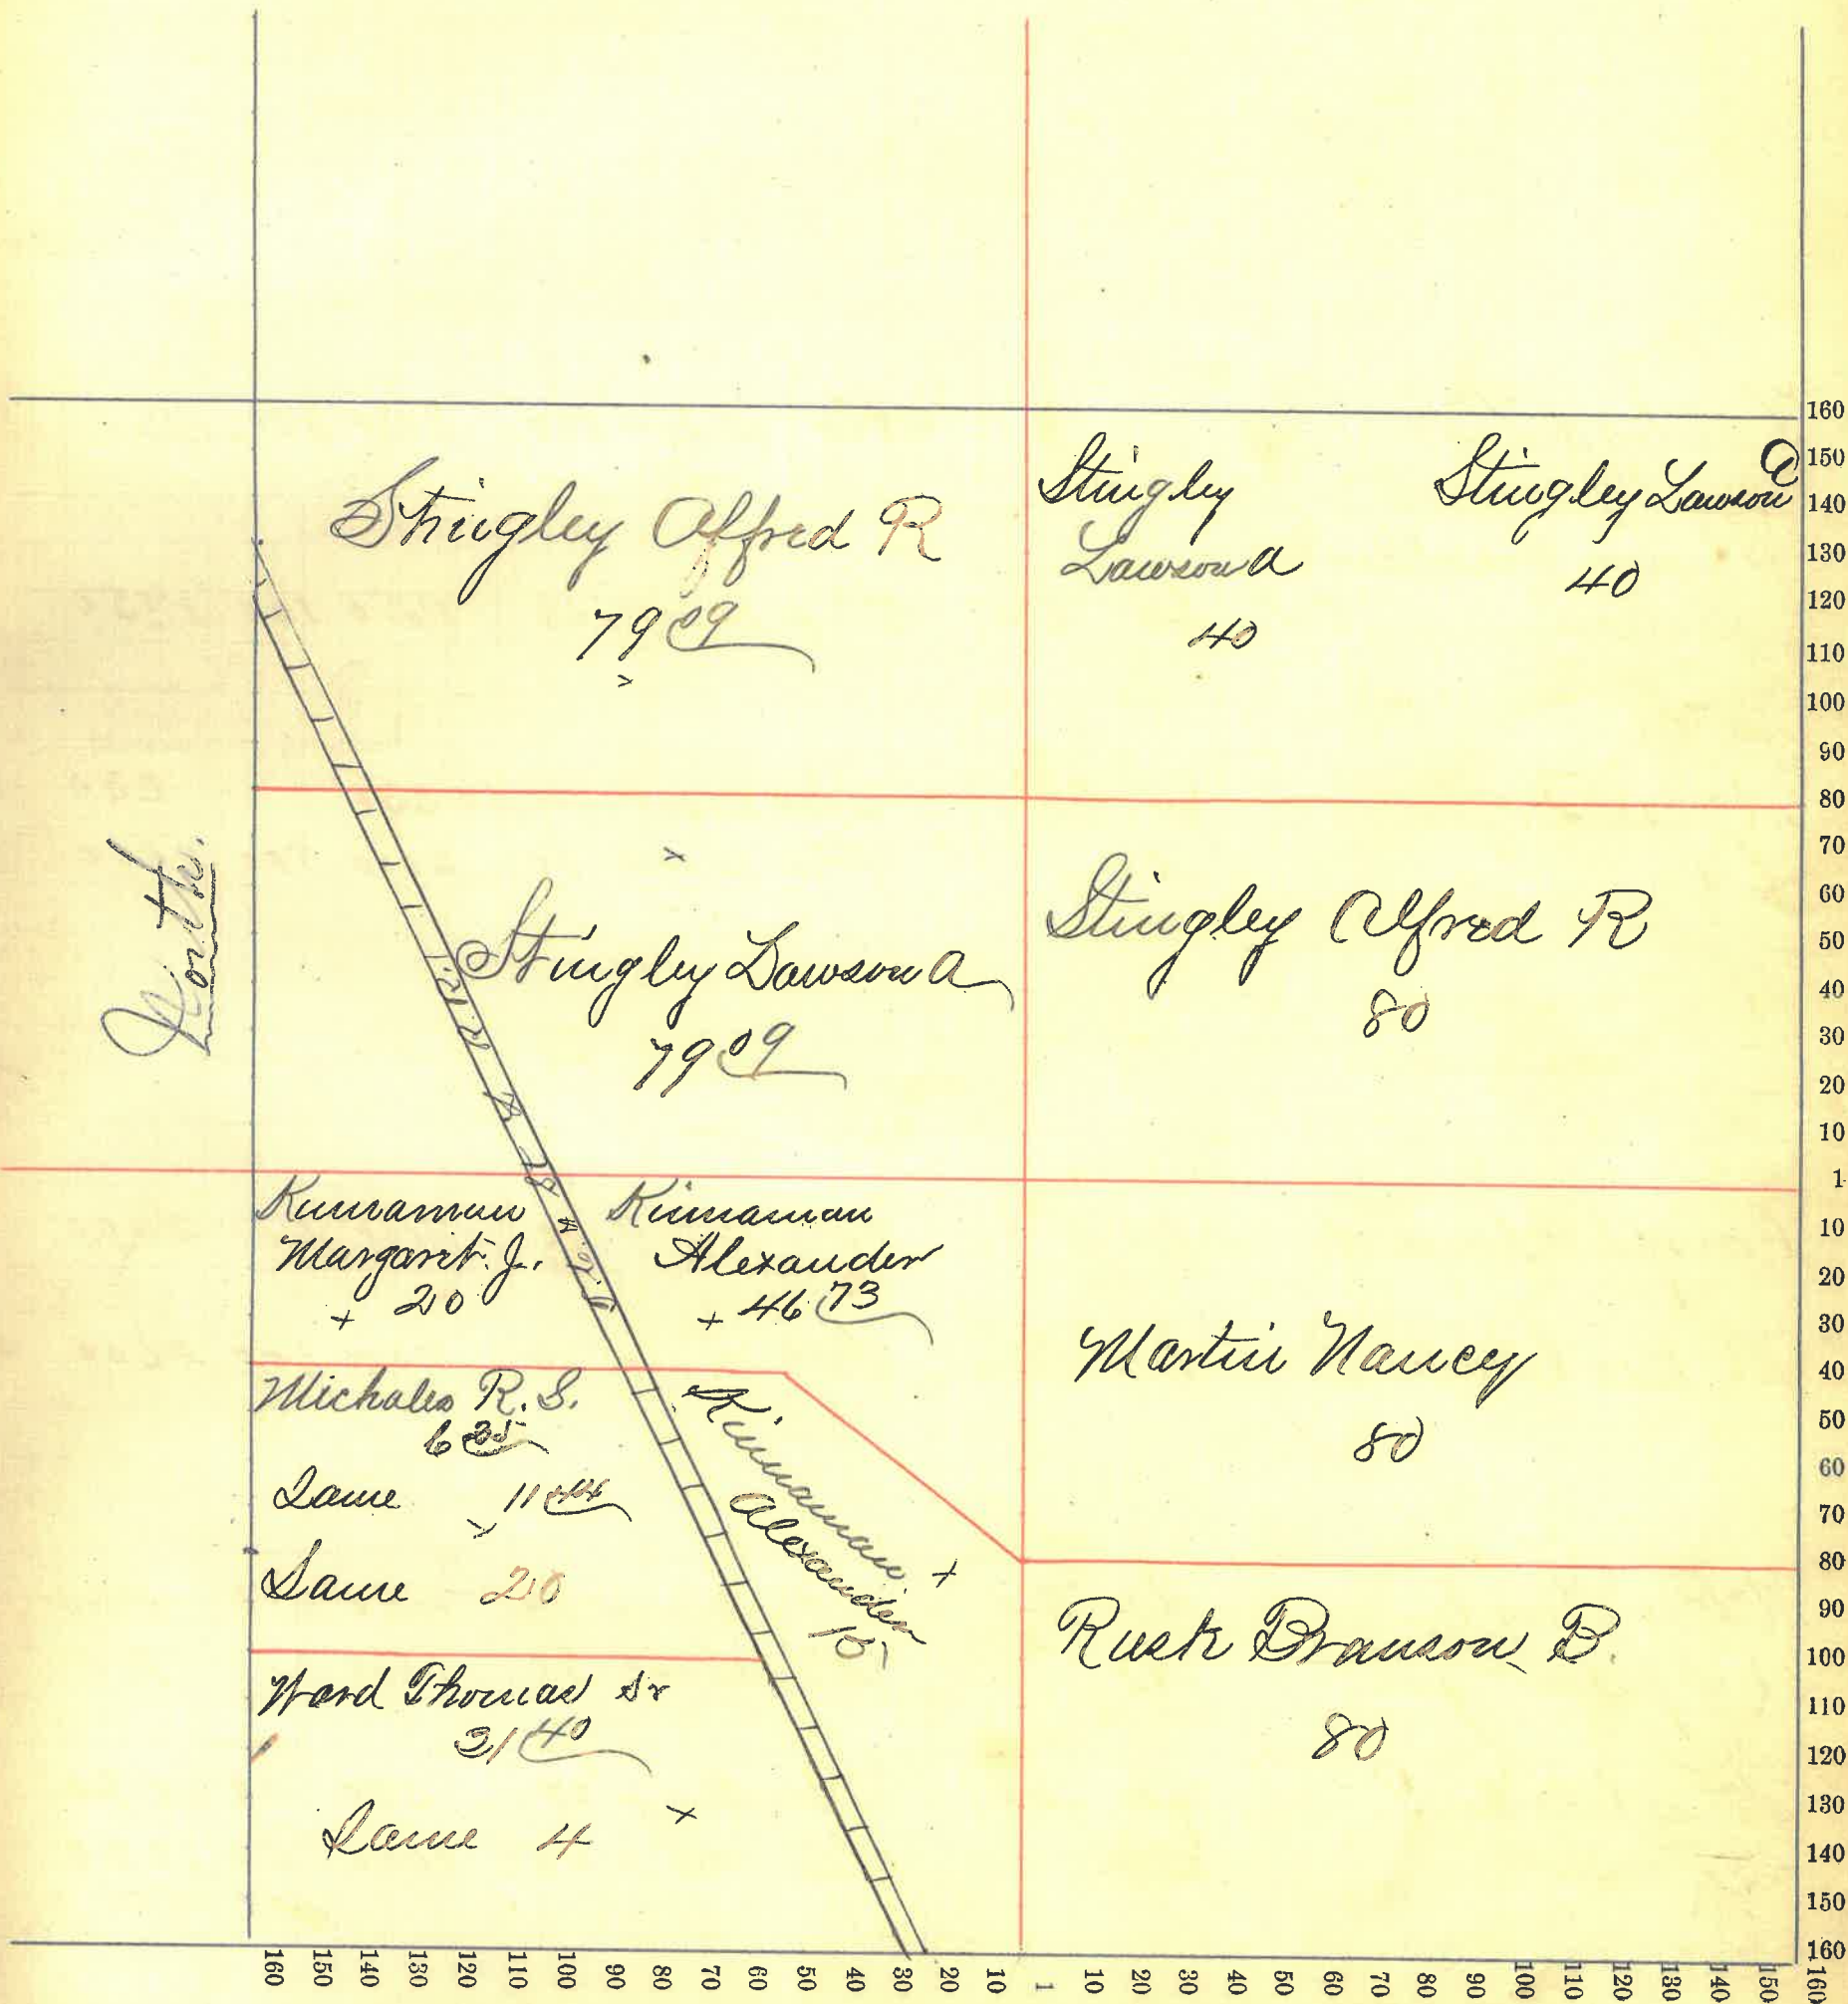 Stingley Alfred R
79 09
Stingley
Lawson A
40
Stingley Lawson A
40
North.
Stingley Lawson A
79 09
Stingley Alfred R
80
Kinnaman
Margaret. J.
+ 20
Kinnaman
Alexander
+ 46 73
Martin Nancy
80
Michales R. S.
Same 11 44
Same 20
Kinnaman
Alexander
15
Ward Thomas Sr
31 40
Same 4
Rusk Branson B.
80
160
150
140
130
120
110
100
90
80
70
60
50
40
30
20
10
1
10
20
30
40
50
60
70
80
90
100
110
120
130
140
150
160
160 150 140 130 120 110 100 90 80 70 60 50 40 30 20 10 1 10 20 30 40 50 60 70 80 90 100 110 120 130 140 150 160